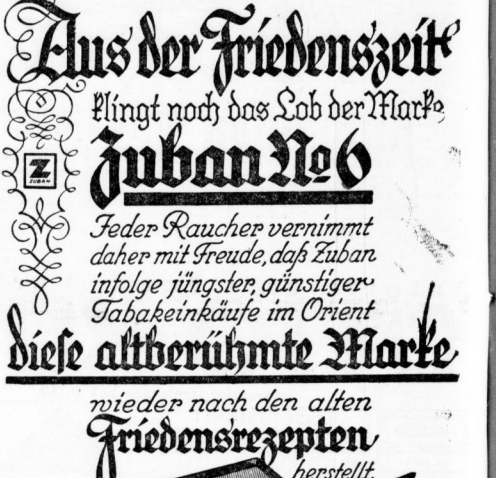 Aus der Friedenszeit
klingt noch das Lob der Marke
Zuban No 6
Z
ZUBAN
Jeder Raucher vernimmt
daher mit Freude, daß Zuban
infolge jüngster, günstiger
Tabakeinkäufe im Orient
diese altberühmte Marke
wieder nach den alten
Friedensrezepten
herstellt.